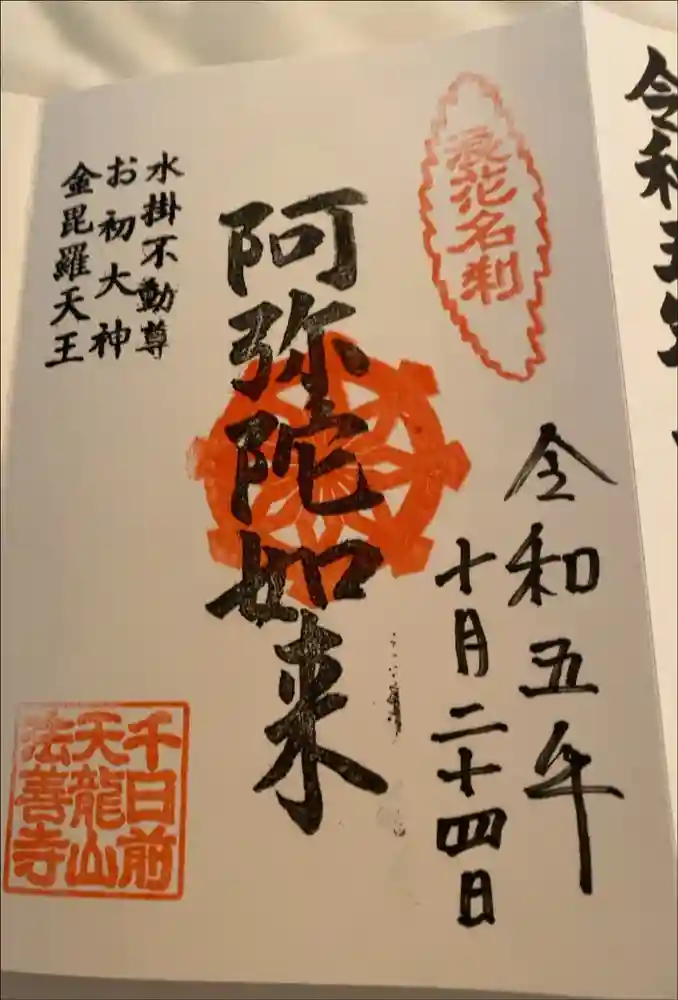 浪花名刹
令和五年
十月二十四日
阿弥陀如来
水掛不動尊
お初大神
金毘羅天王
千日前
天龍山
法善寺
令和五年